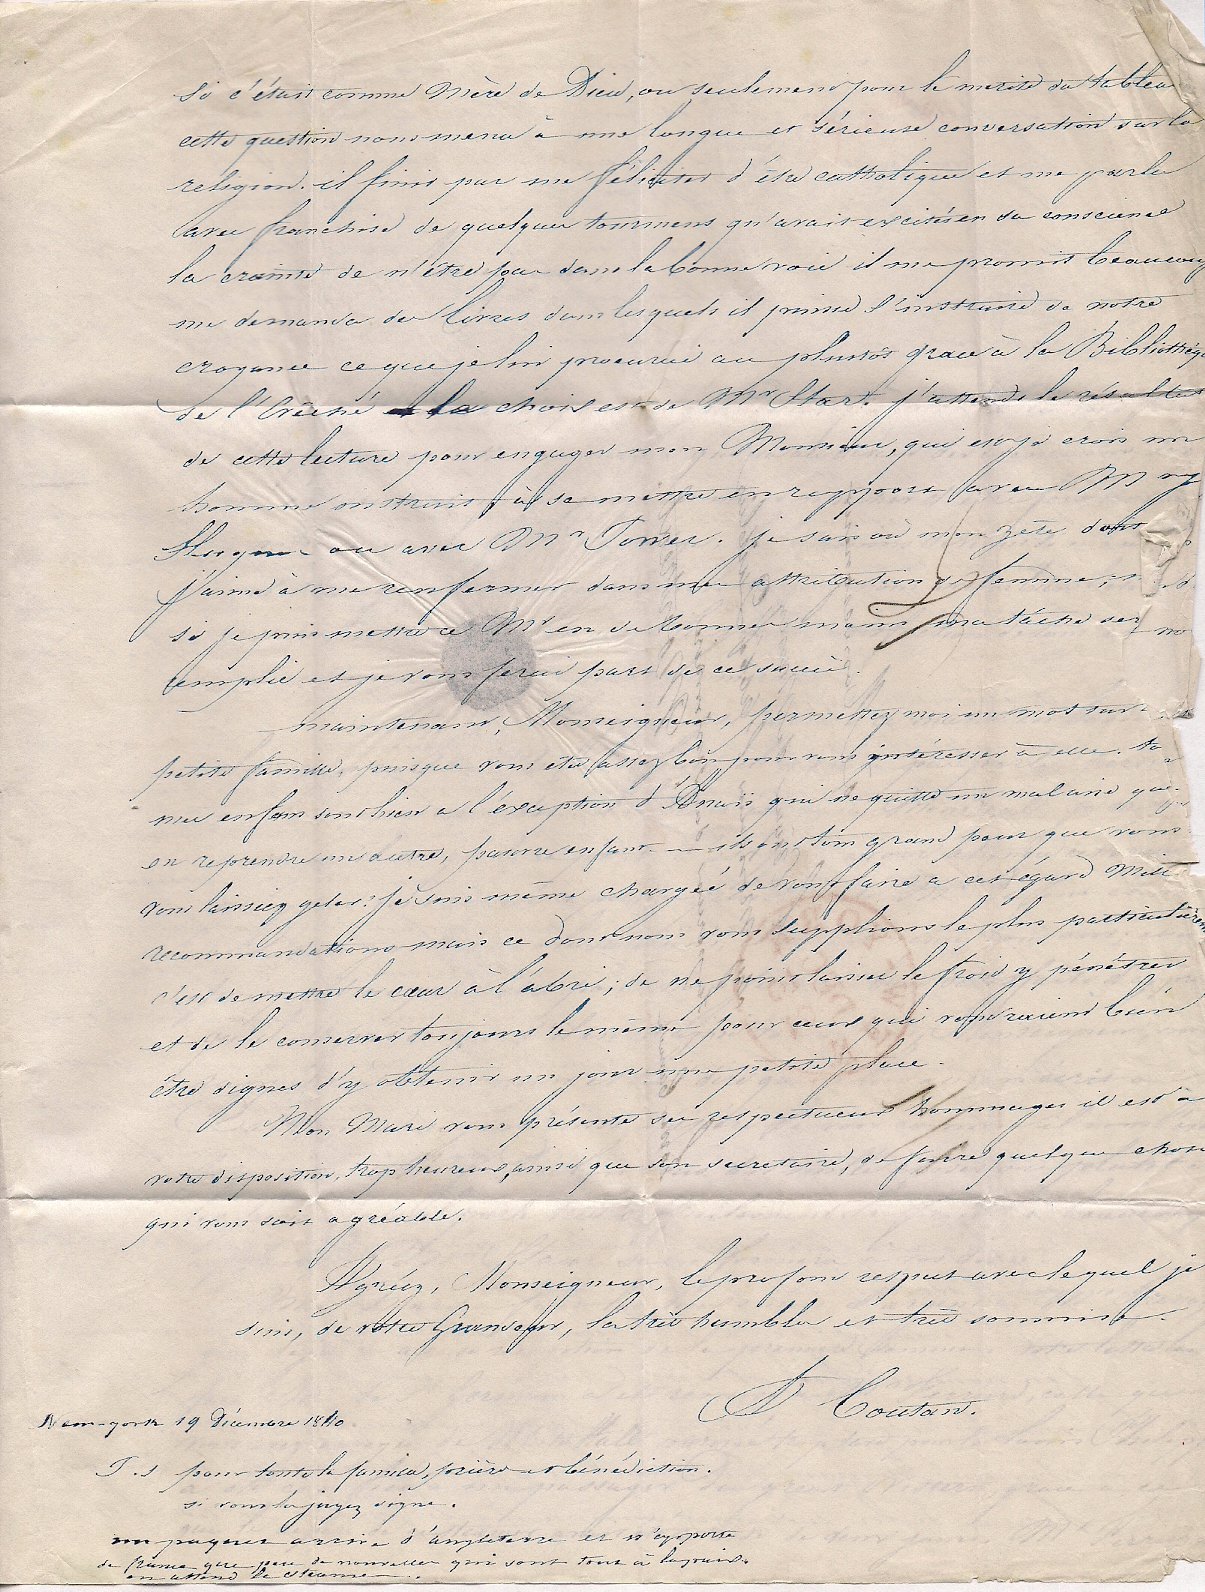 si c'était comme Mère de Dieu, ou seulement pour le merite du tableau
cette question nous mena à une longue et sérieuse conversation sur la
religion. il finit par me féliciter d'être catholique et me parla
avec franchise de quelques tourmens qu'avait excités en sa conscience
la crainte de n'être pas dans la bonne voie il me promit beaucoup
me demanda des livres dans lesquels il puisse s'instruire de notre
croyance ce que je lui procurai au plustôt grace à la Bibliothèque
de l'Evêché la choix est de Mr Starr. j'attends le résultat
de cette lecture pour engager mon Monsieur, qui est je crois un
homme instruit, à se mettre en rapport avec Mgr
ou avec Mr Power. je sais où mon zèle doit
j'aime à me renfermer dans mes attributions de femme,
si je puis mettre ce Mr en de bonnes mains ma tâche sera
remplie et je vous ferai part de ce succès.
maintenant, Monseigneur, permettez moi un mot sur
petite famille, puisque vous etes assez bon pour vous intéresser à elle.
mes enfans sont bien a l'exception d'Anaïs qui ne quitte un malaise que
en reprendre un autre, pauvre enfant. — ils ont grand peur que vous
vous laissiez geler: je suis même chargée de vous faire a cet égard mille
recommandations mais ce dont nous vous supplions le plus particulièrement
c'est de mettre le cœur à l'abri; de ne point laisser le froid y pénétrer
et de le conserver toujours le même pour ceux qui voudraient bien
être dignes d'y obtenir un jour une petite place.
Mon Mari vous présente ses respectueux hommages il est à
votre disposition, trop heureux, ainsi que son secretaire, de faire quelque chose
qui vous soit agréable.
Agréez, Monseigneur, le profond respect avec lequel je
suis, de votre Grandeur, la très humble et très soumise.
A Coutan.
New-york 19 Décembre 1840
P.S pour toute la famille, prière et bénédiction.
si vous la jugez digne.
un paquet arrive d'angleterre et n'apporte
de france que peu de nouvelles qui sont tout à la paix.
on attend le steamer.